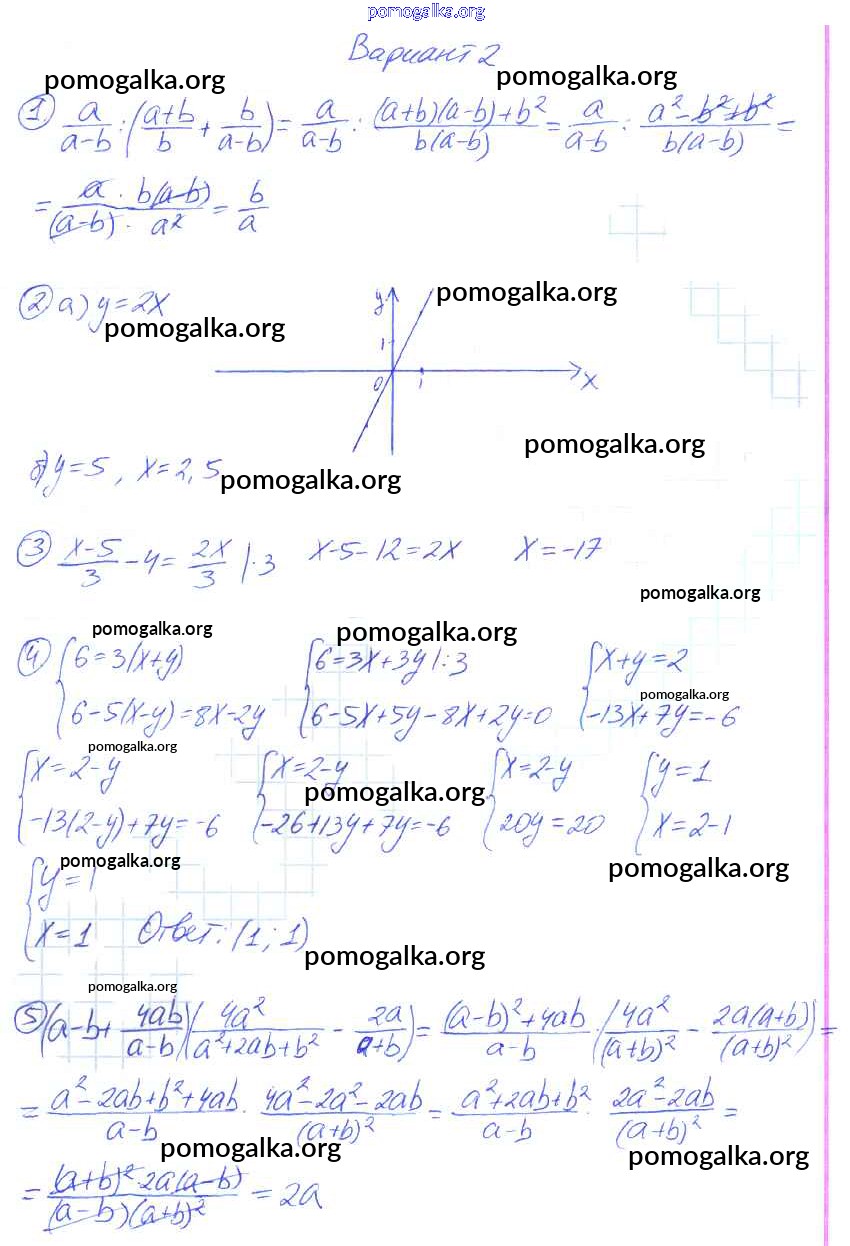 pomogalka.org
Вариант 2
pomogalka.org pomogalka.org
① a/(a-b) : ((a+b)/b + b/(a-b)) = a/(a-b) : ((a+b)(a-b)+b²)/(b(a-b)) = a/(a-b) : (a²-b²+b²)/(b(a-b)) =
= (a · b(a-b))/((a-b) · a²) = b/a
② а) y=2x
pomogalka.org pomogalka.org
y
1
0 1 x
pomogalka.org
б) y=5, x=2,5
pomogalka.org
③ (x-5)/3 - 4 = 2x/3 |·3 x-5-12=2x x=-17
pomogalka.org
pomogalka.org pomogalka.org
④ {6=3(x+y) {6=3x+3y |:3 {x+y=2
pomogalka.org
{6-5(x-y)=8x-2y {6-5x+5y-8x+2y=0 {-13x+7y=-6
pomogalka.org
{x=2-y {x=2-y {x=2-y {y=1
pomogalka.org
{-13(2-y)+7y=-6 {-26+13y+7y=-6 {20y=20 {x=2-1
pomogalka.org pomogalka.org
{y=1
{x=1 Ответ: (1; 1)
pomogalka.org
pomogalka.org
⑤ (a-b+4ab/(a-b))(4a²/(a²+2ab+b²) - 2a/(a+b)) = ((a-b)²+4ab)/(a-b) · (4a²/(a+b)² - 2a(a+b)/(a+b)²) =
= (a²-2ab+b²+4ab)/(a-b) · (4a²-2a²-2ab)/(a+b)² = (a²+2ab+b²)/(a-b) · (2a²-2ab)/(a+b)² =
pomogalka.org pomogalka.org
= ((a+b)² 2a(a-b))/((a-b)(a+b)²) = 2a